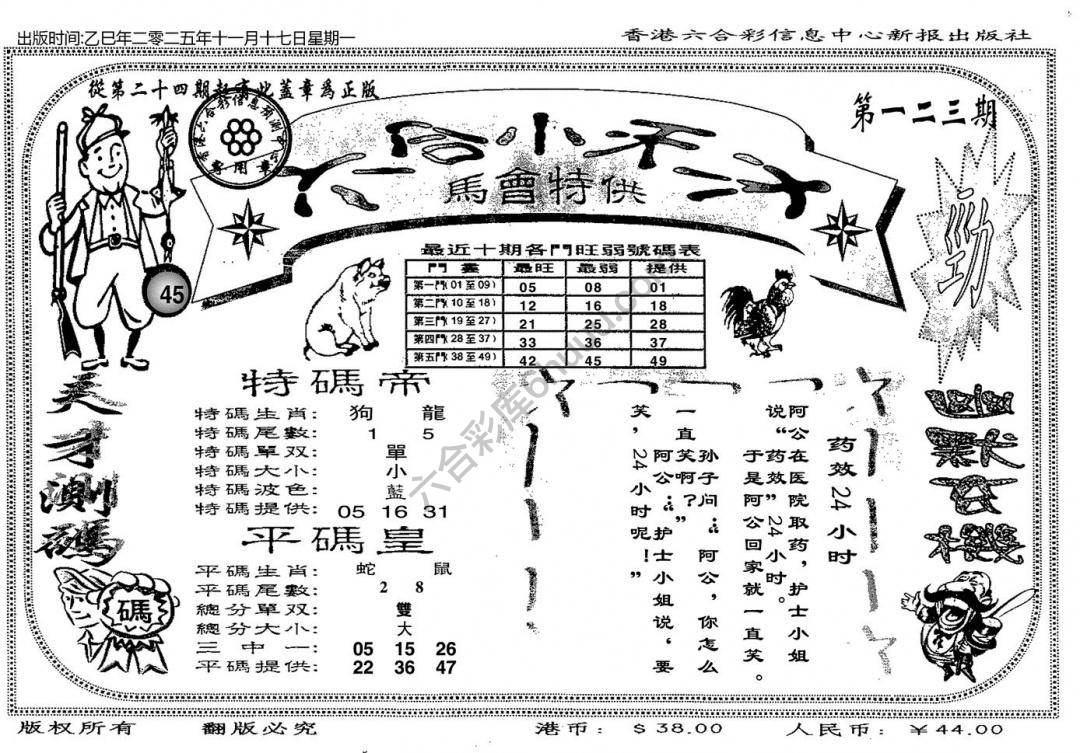 出版时间:乙巳年二零二五年十一月十七日星期一
香港六合彩信息中心新报出版社
從第二十四期起有此蓋章爲正版
第一二三期
專用章
馬會特供
勁
45
最近十期各門旺弱號碼表
門畫 最旺 最弱 提供
第一門(01至09) 05 08 01
第二門(10至18) 12 16 18
第三門(19至27) 21 25 28
第四門(28至37) 33 36 37
第五門(38至49) 42 45 49
天才測碼
特碼帝
特碼生肖: 狗 龍
特碼尾數: 1 5
特碼單双: 單
特碼大小: 小
特碼波色: 藍
特碼提供: 05 16 31
平碼皇
平碼生肖: 蛇 鼠
平碼尾數: 2 8
總分單双: 雙
總分大小: 大
三中一: 05 15 26
平碼提供: 22 36 47
碼
幽默玄機
药效24小时
阿公在医院取药，护士小姐
说“药效”24小时。
于是阿公回家就一直笑。
孙子问：“阿公，你怎么
一直笑啊？”
阿公：“护士小姐说，要
笑，24小时呢！”
六合彩库6huuu.com
版权所有
翻版必究
港币: $38.00
人民币: ￥44.00